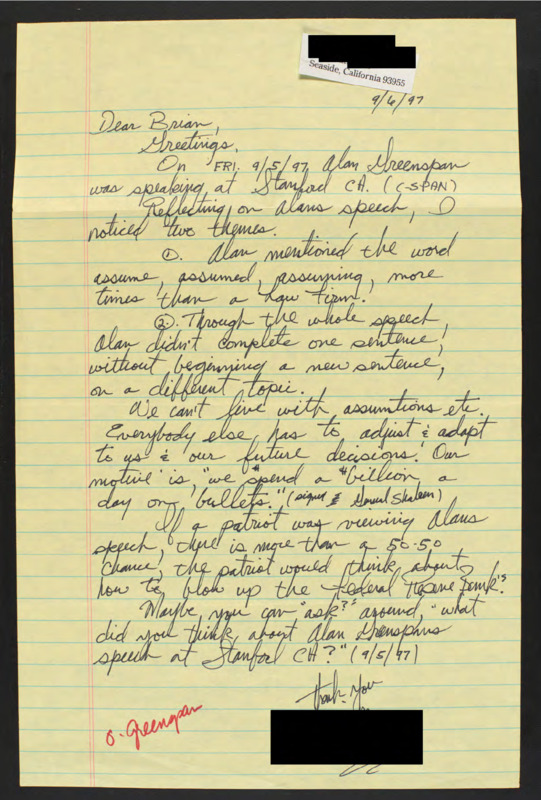 Seaside, California 93955
9/6/97
Dear Brian,
Greetings.
On FRI. 9/5/97 Alan Greenspan
was speaking at Stanford CH. (C-SPAN)
Reflecting on Alans speech, I
noticed two themes.
①. Alan mentioned the word
assume, assumed, assuming, more
times than a Law Firm.
②. Through the whole speech,
Alan didn't complete one sentence,
without beginning a new sentence,
on a different topic.
We can't live with assumtions etc.
Everybody else has to adjust & adapt
to us & our future decisions. Our
motive is, "we spend a $billion a
day on bullets." (signed &
If a patriot was viewing Alans
speech, there is more than a 50-50
chance, the patriot would think about
how to blow up the Federal Reserve Bank's.
Maybe you can "ask?" around, "what
did you think about Alan Greenspans
speech at Stanford CH?" (9/5/97)
Thank-You
o. Greenspan